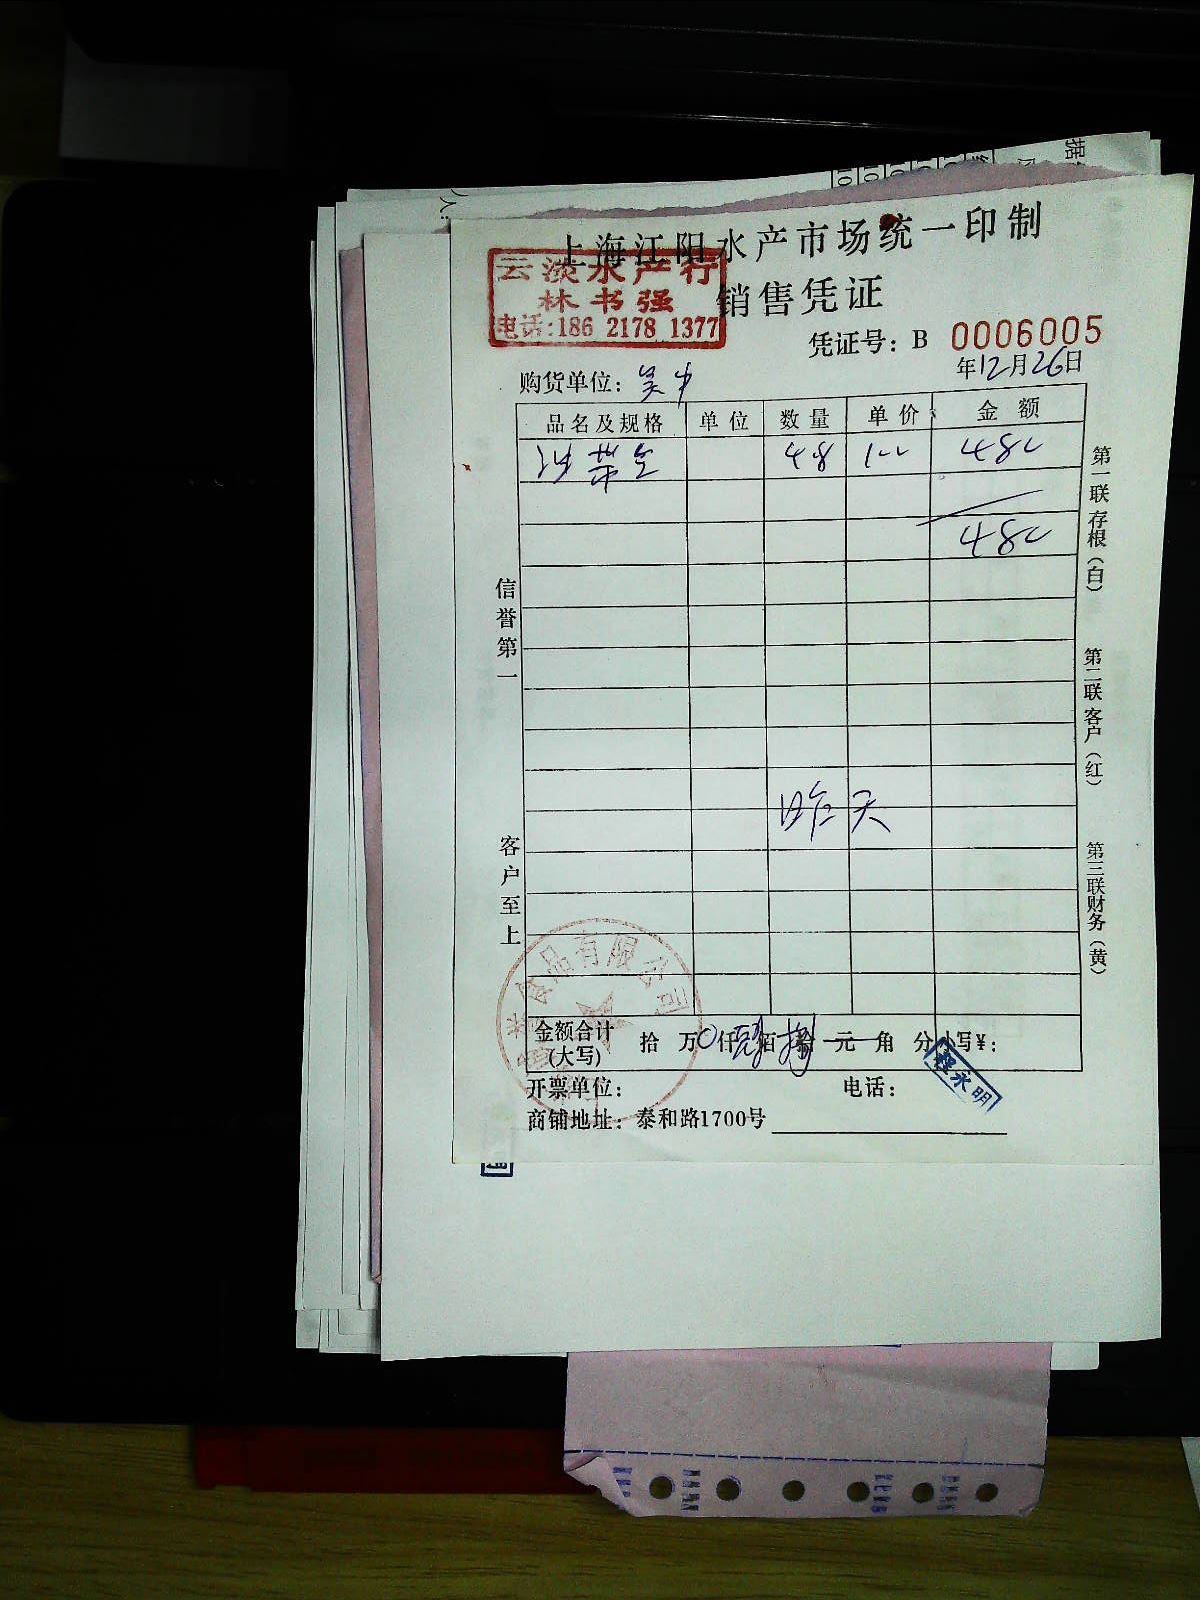 上海江阳水产市场统一印制
云淡水产行
林书强
电话:186 2178 1377
销售凭证
凭证号：B 0006005
年12月26日
购货单位：
品名及规格 单位 数量 单价 金额
48 480
480
昨天
信誉第一
客户至上
第一联存根（白）
第二联客户（红）
第三联财务（黄）
食品有限公司
金额合计 拾 万 0 仟 肆 佰 捌 拾 元 角 分 小写¥：
(大写)
程永明
开票单位： 电话：
商铺地址：泰和路1700号